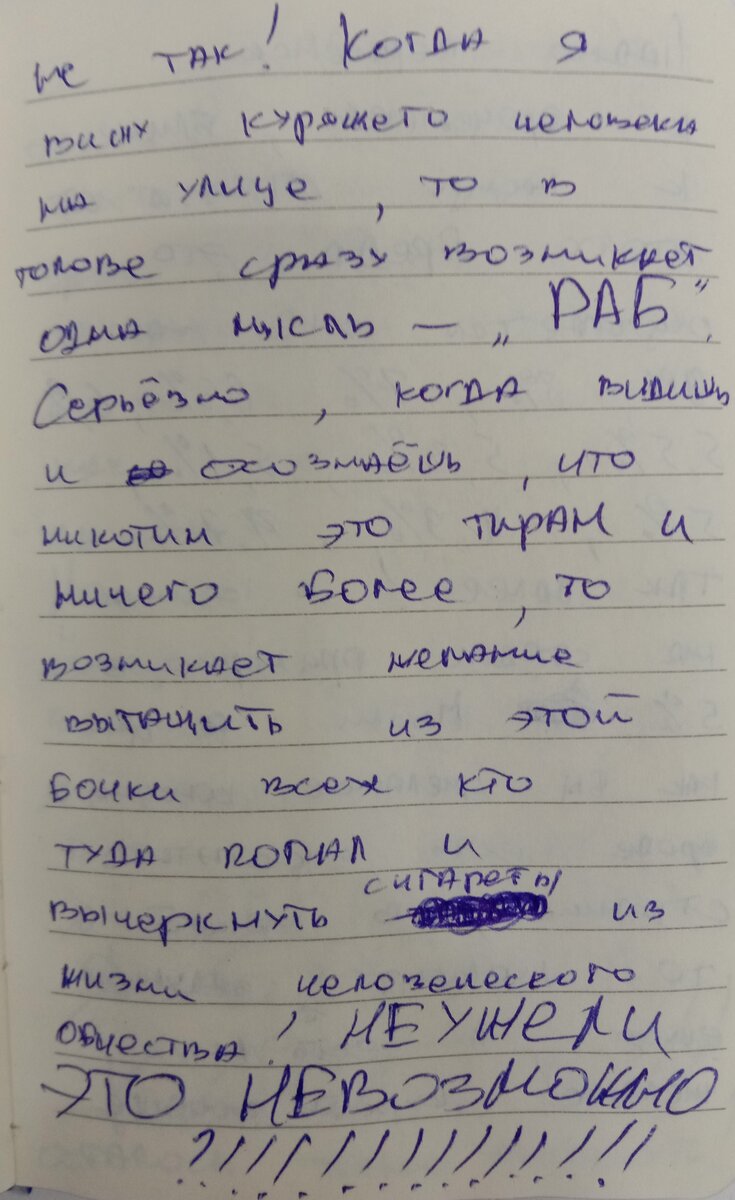 не так! Когда я
вижу курящего человека
на улице, то в
голове сразу возникает
одна мысль — „РАБ".
Серьёзно, когда видишь
и осознаёшь, что
никотин это тиран и
ничего более, то
возникает желание
вытащить из этой
бочки всех кто
туда попал и
сигареты
вычеркнуть из
жизни человеческого
общества! НЕУЖЕЛИ
ЭТО НЕВОЗМОЖНО
?!!!!!!!!!!!!